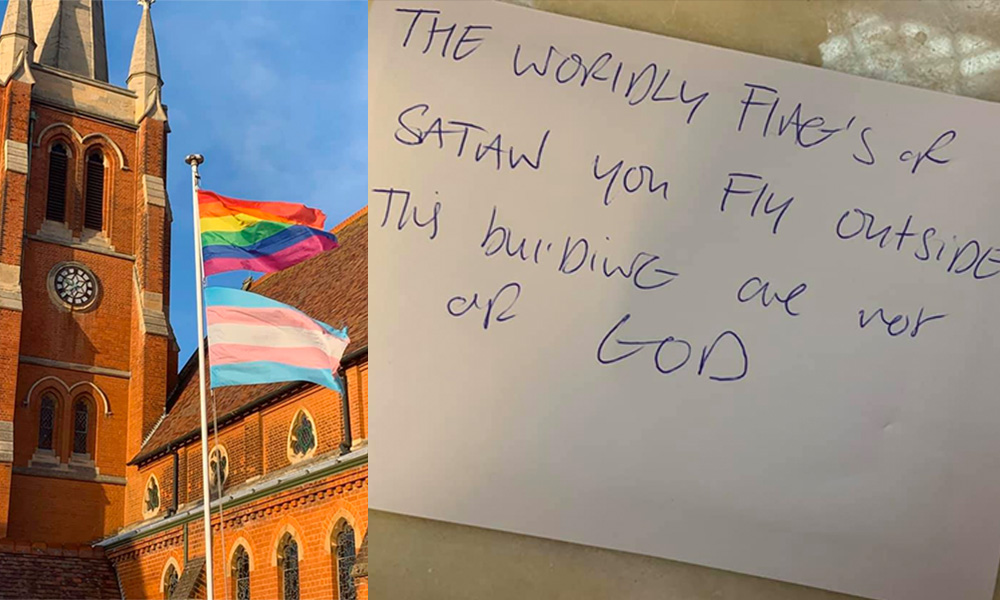 THE WORlDLY FlAG'S of
SATAN you Fly outsiDE
This builDiNG are not
of GOD